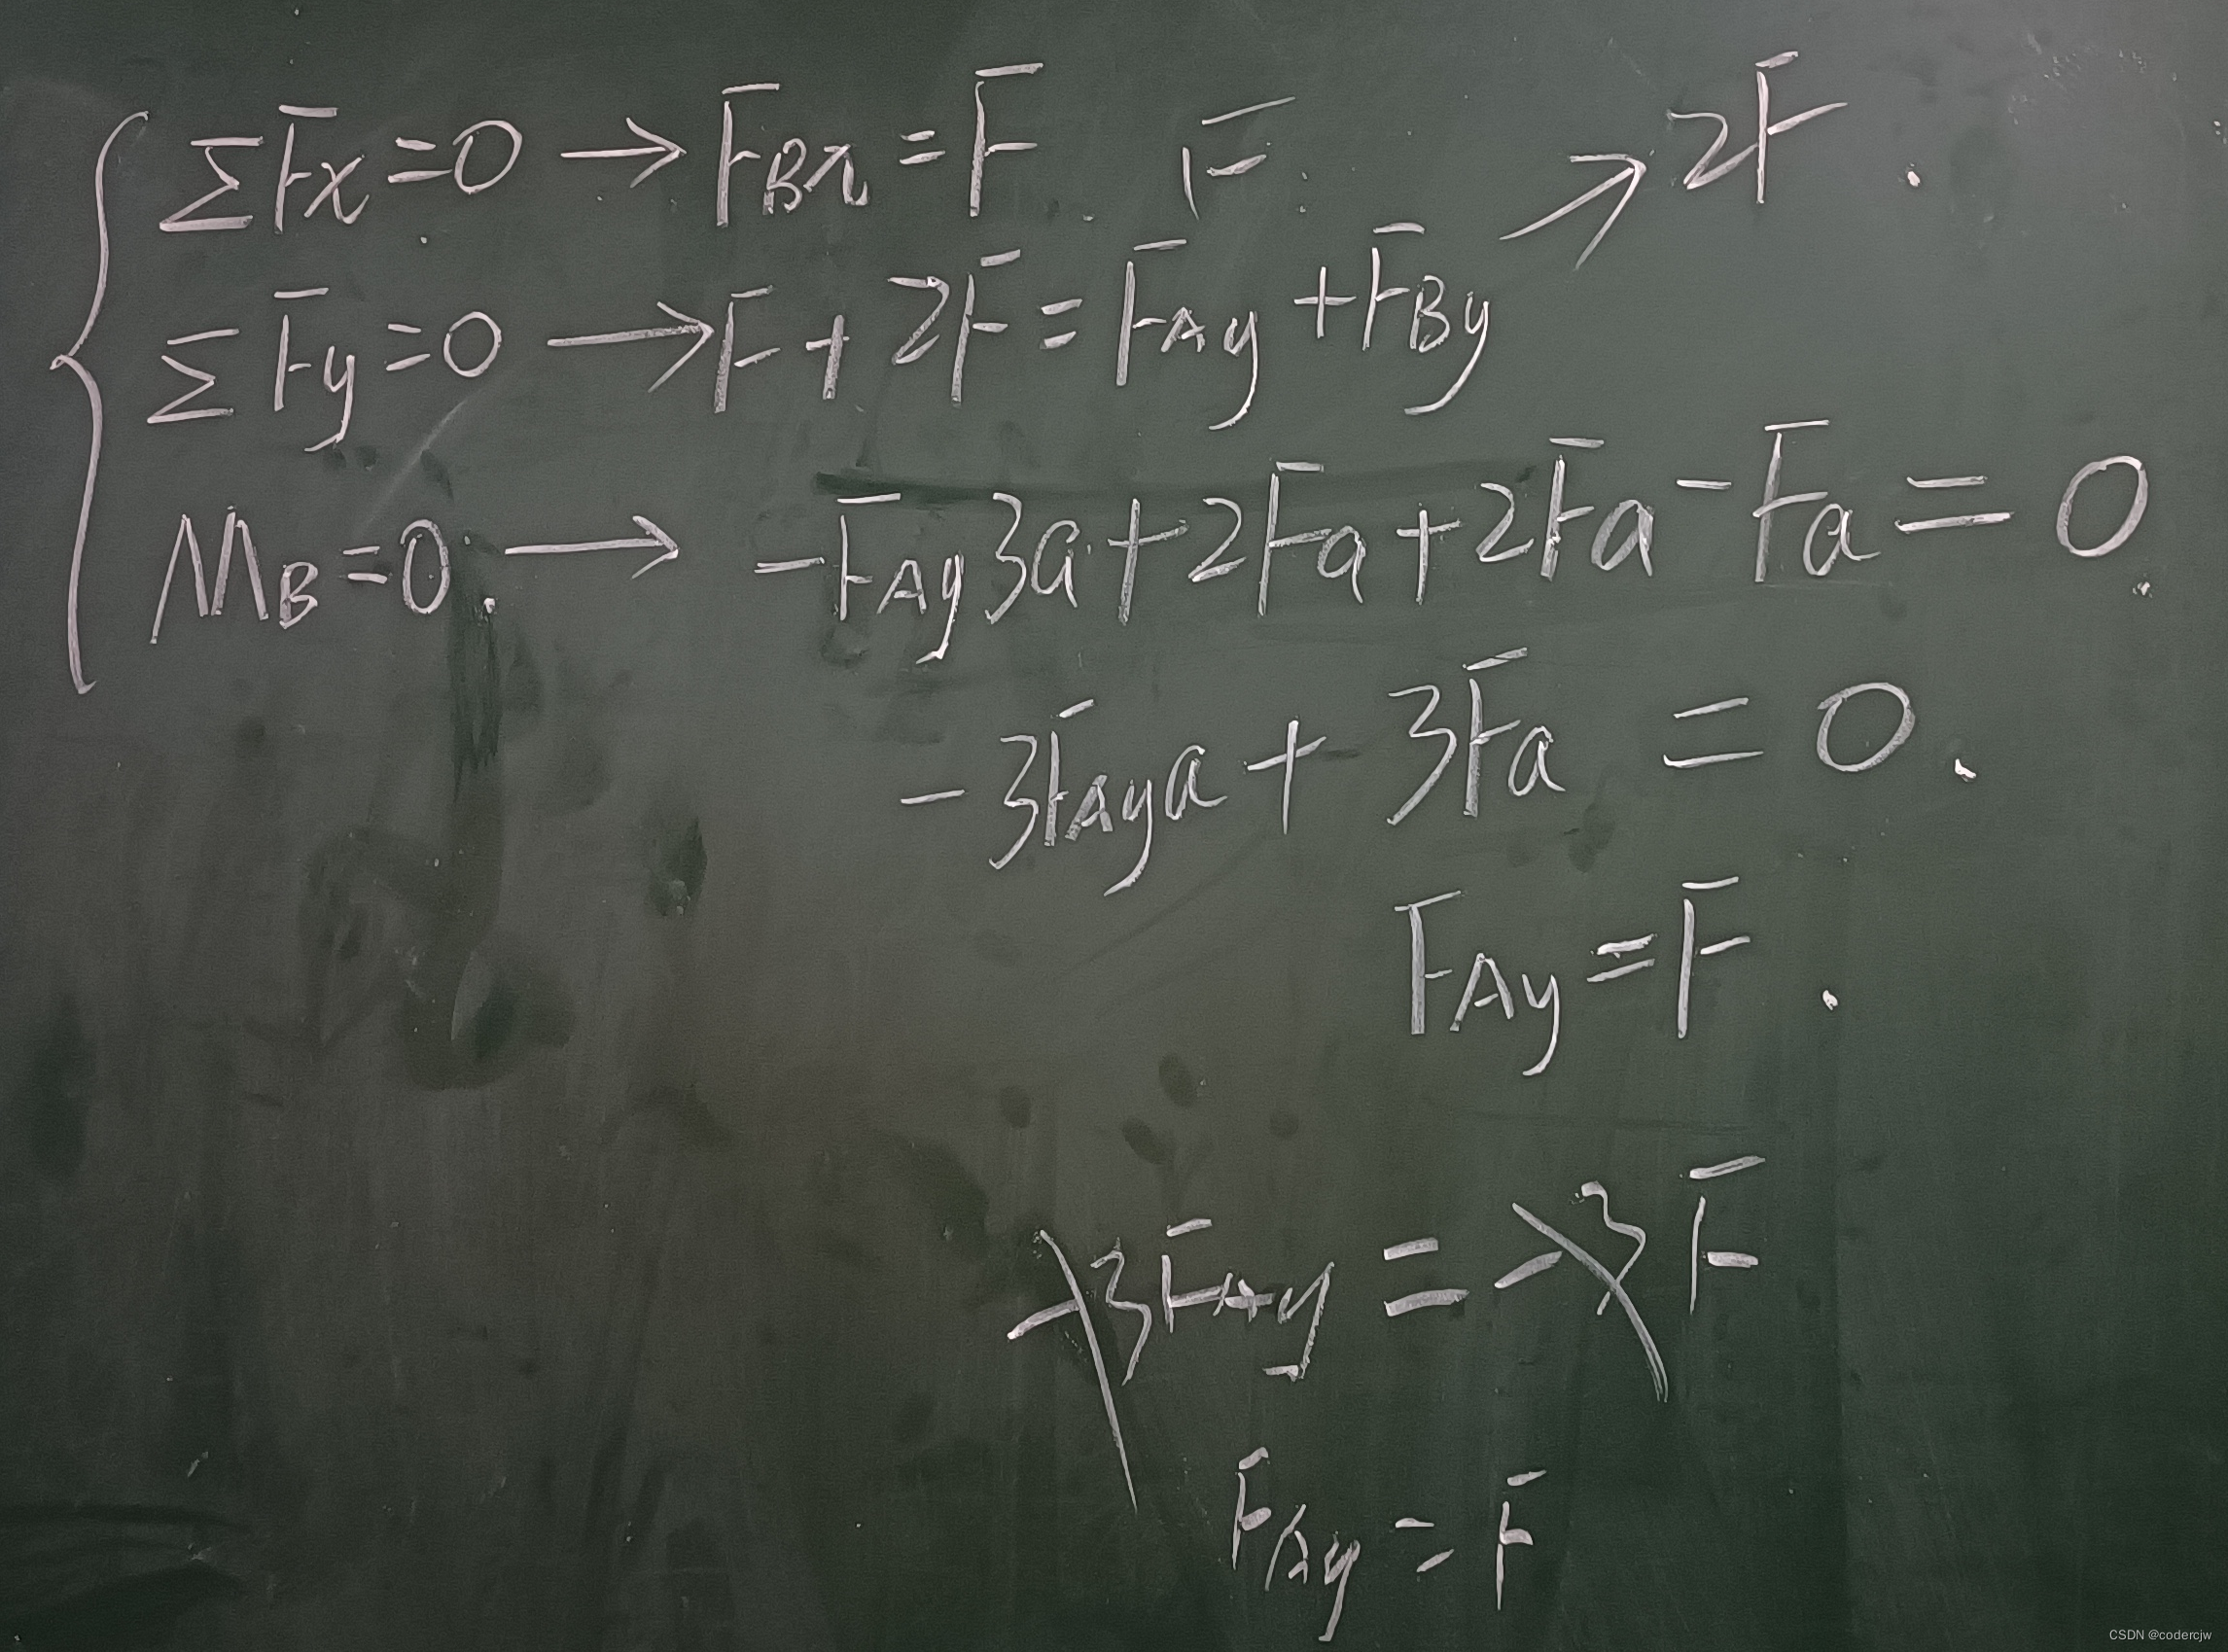 ΣFx=0 → FBx=F F. 2F.
ΣFy=0 → F+2F=FAy+FBy ↗
MB=0. → -FAy3a+2Fa+2Fa-Fa=0.
-3FAya+3Fa=0.
FAy=F.
-3FAy=-3F
FAy=F
CSDN @codercjw